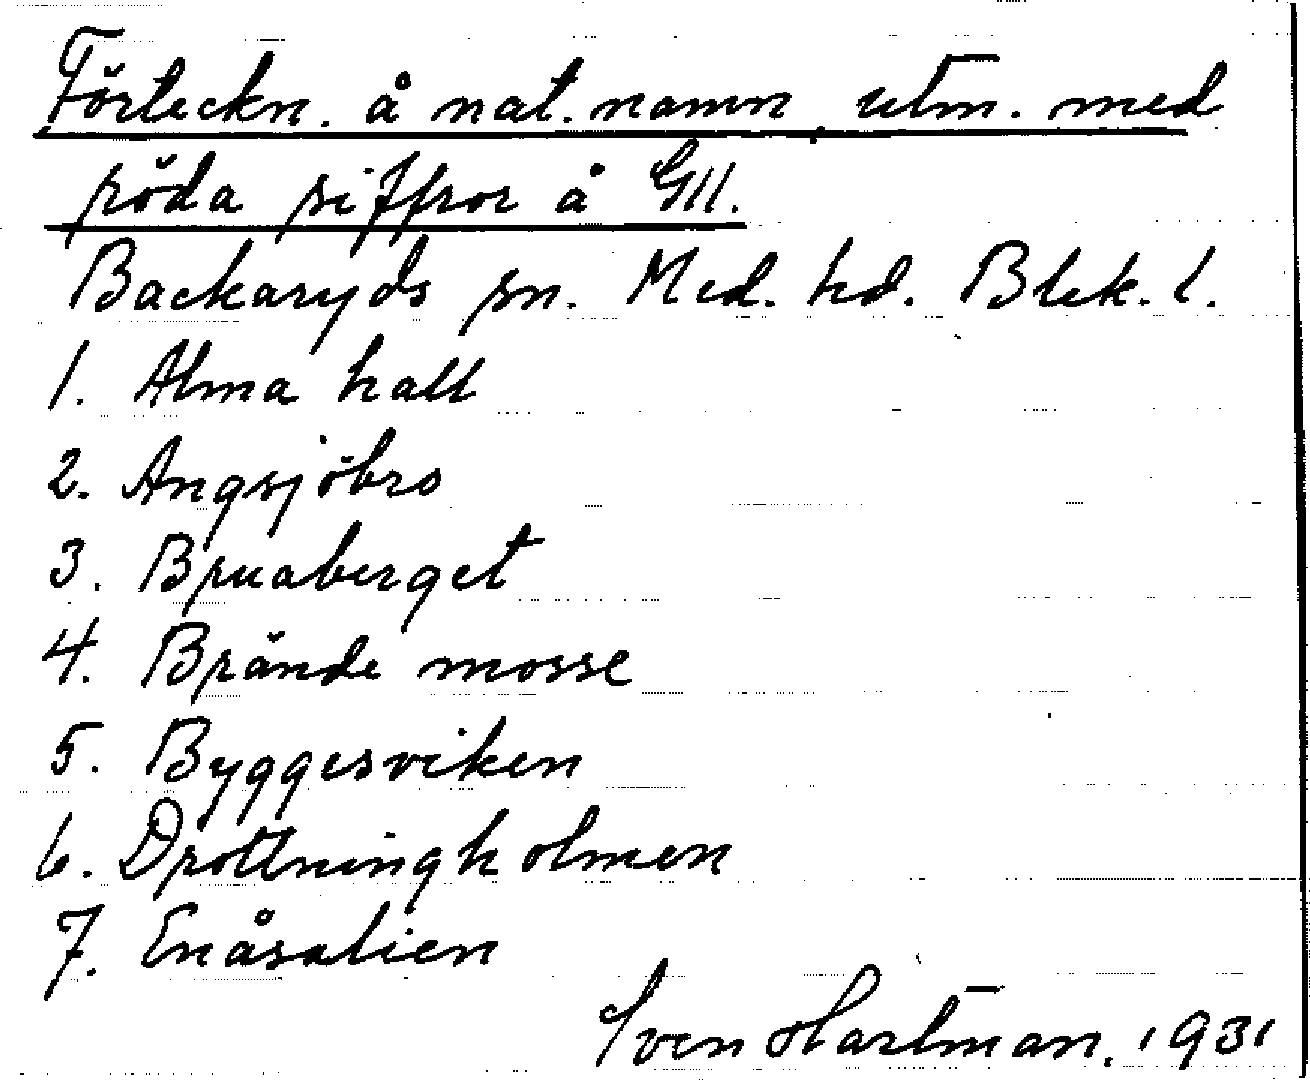 Förteckn. å nat. namn, utm. med
röda siffror å GII.
Backaryds sn. Med. hd. Blek. l.
1. Alma hall
2. Angsjöbro
3. Bruaberget
4. Brände mosse
5. Byggesviken
6. Drottningholmen
7. Enåsalien
Sven Hartman. 1931